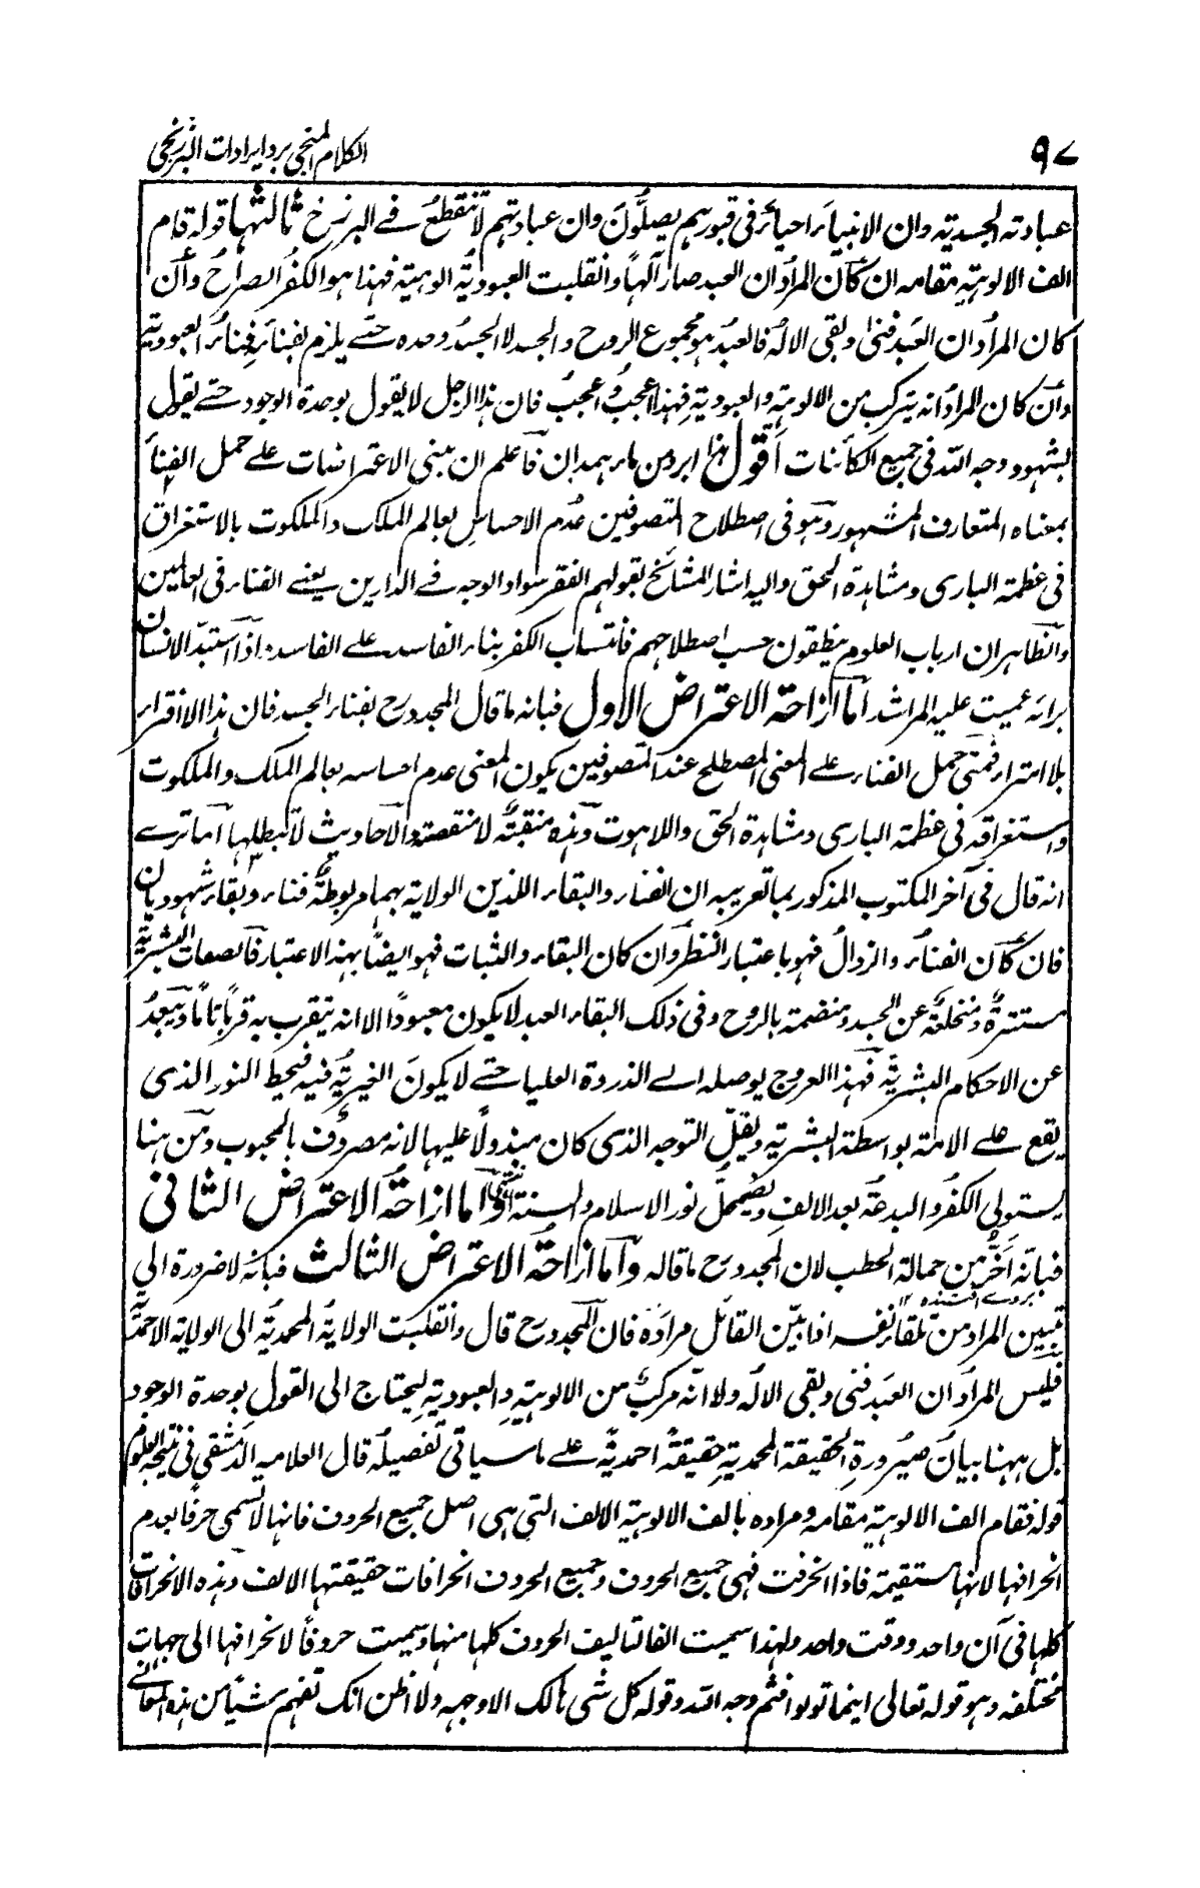 ٩٧ الكلام المنجي برد ايرادات البرزنجي
عبادته الجسدية وان الانبياء احياء في قبورهم يصلون وان عبادتهم لا تنقطع في البرزخ ثالثها قوله قام
الف الالوهية مقامه ان كان المراد ان العبد صار آلهاً وانقلبت العبودية الوهية فهذا هو الكفر الصراح وان
كان المراد ان العبد فنى وبقى الاله فالعبد هو مجموع الروح والجسد لا الجسد وحده حتى يلزم بفنائه فناء العبودية
وان كان المراد انه يتركب من الالوهية والعبودية فهذا اعجب واعجب فان هذا الرجل لا يقول بوحدة الوجود حتى يقول
بشهود وجه الله في جميع الكائنات اقول هذا ابرد من ماء همدان فاعلم ان مبنى الاعتراضات على حمل الفناء
بمعناه المتعارف المشهور وهو في اصطلاح المتصوفين عدم الاحساس بعالم الملك والملكوت بالاستغراق
في عظمة البارى ومشاهدة الحق واليه اشار المشائخ بقولهم الفقر سواد الوجه في الدارين يعنى الفناء في العالمين
والظاهر ان ارباب العلوم ينطقون حسب اصطلاحهم فانتساب الكفر بناء الفاسد على الفاسد اذا استبد الانسان
برائه عميت عليه المراشد اما ازاحة الاعتراض الاول فبانه ما قال المجدد رح بفناء الجسد فان هذا الا افتراء
بلا امتراء فمتى حمل الفناء على المعنى المصطلح عند المتصوفين يكون المعنى عدم احساسه بعالم الملك والملكوت
واستغراقه في عظمة البارى ومشاهدة الحق واللاهوت وهذه منقبة لا منقصة والاحاديث لا تبطلها اما ترى
انه قال في آخر المكتوب المذكور بما تعريبه ان الفناء والبقاء اللذين الولاية بهما مربوطة فناء وبقاء شهوديان
فان كان الفناء والزوال فهو باعتبار النظر وان كان البقاء والثبات فهو ايضاً بهذا الاعتبار فالصفات البشرية
مستترة ومنخلعة عن الجسد ومنضمة بالروح وفي ذلك البقاء العبد لا يكون معبوداً الا انه يتقرب به قرباً تاماً ويبعد
عن الاحكام البشرية فهذا العروج يوصله الى الذروة العليا حتى لا يكون الغيرية فيه فيحط النور الذى
يقع على الامة بواسطة البشرية ويقل التوجه الذى كان مبذولاً عليها لانه مصروف بالمحبوب ومن هنا
يستولى الكفر والبدعة بعد الالف ويضمحل نور الاسلام والسنة انتهى واما ازاحة الاعتراض الثانى
فبانه من حمالة الحطب لان المجدد رح ما قاله واما ازاحة الاعتراض الثالث فبانه لا ضرورة الى
تبيين المراد من تلقاء نفسه اذا بين القائل مراده فان المجدد رح قال وانقلبت الولاية المحمدية الى الولاية الاحمدية
فليس المراد ان العبد فنى وبقى الاله ولا انه مركب من الالوهية والعبودية ليحتاج الى القول بوحدة الوجود
بل ههنا بيان صيرورة الحقيقة المحمدية حقيقة احمدية على ما سياتى تفصيله قال العلامة الدمشقي في نتيجة العلوم
قوله فقام الف الالوهية مقامه ومراده بالف الالوهية الالف التي هي اصل جميع الحروف فانها لا تسمى حرفا لعدم
انحرافها لانها مستقيمة فاذا انحرفت فهى جميع الحروف وجميع الحروف انحرافات حقيقتها الالف وهذه الانحرافات
كلها في آن واحد ووقت واحد ولهذا سميت الفا لتاليف الحروف كلها منها وسميت حروفاً لانحرافها الى جهات
مختلفة وهو قوله تعالى اينما تولوا فثم وجه الله وقوله كل شى هالك الا وجهه ولا اظن انك تفهم شيئا من هذه المعانى